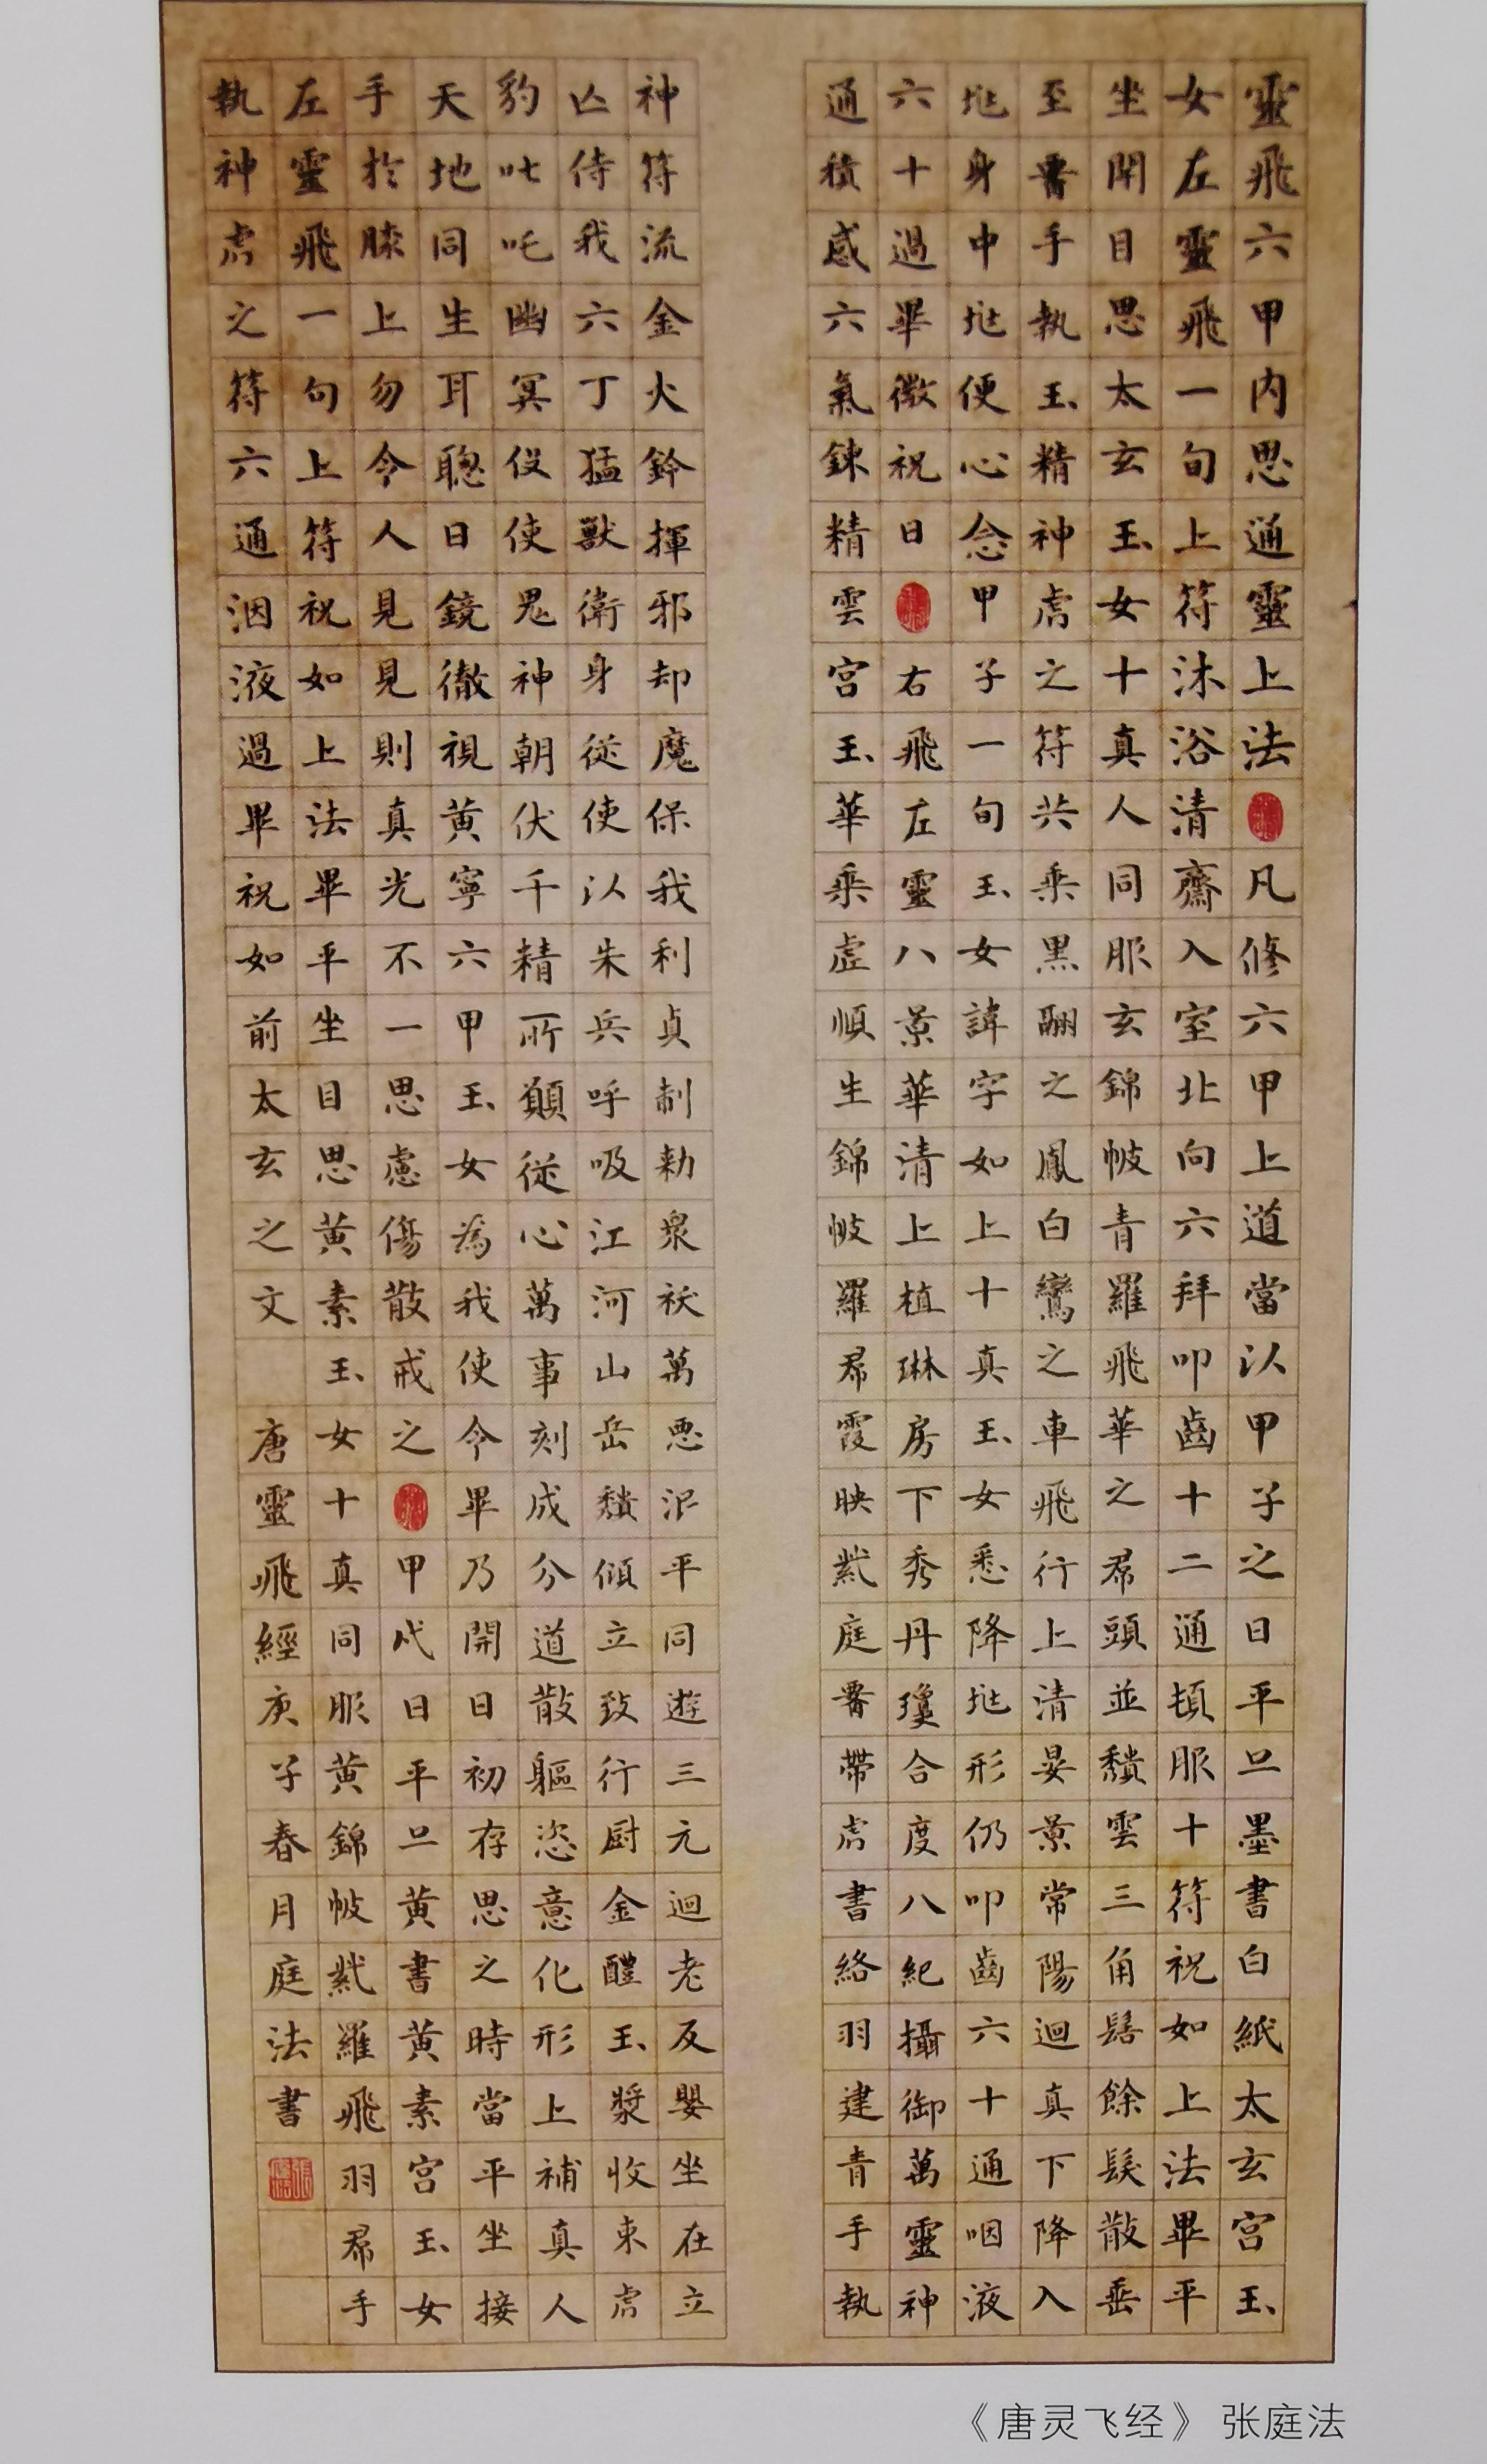 靈飛六甲内思通靈上法凡修六甲上道當以甲子之日平旦墨書白紙太玄宫玉
女左靈飛一旬上符沐浴清齋入室北向六拜叩齒十二通頓服十符祝如上法畢平
坐閉目思太玄玉女十真人同服玄錦帔青羅飛華之帬頭並頽雲三角髻餘髮散垂
至腰手執玉精神虎之符共乘黑翮之鳳白鸞之車飛行上清晏景常陽迴真下降入
兆身中兆便心念甲子一旬玉女諱字如上十真玉女悉降兆形仍叩齒六十通咽液
六十過畢微祝曰右飛左靈八景華清上植琳房下秀丹瓊合度八紀攝御萬靈神
通積感六氣錬精雲宫玉華乘虚順生錦帔羅帬霞映紫庭腰帶虎書絡羽建青手執
神符流金火鈴揮邪却魔保我利貞制勑衆祅萬惡泯平同遊三元迴老反嬰坐在立
亡侍我六丁猛獸衛身從使以朱兵呼吸江河山岳頽傾立致行厨金醴玉漿收束虎
豹叱吒幽冥役使鬼神朝伏千精所願從心萬事刻成分道散軀恣意化形上補真人
天地同生耳聰目鏡徹視黄寧六甲玉女為我使令畢乃開目初存思之時當平坐接
手於膝上勿令人見見則真光不一思慮傷散戒之甲戌日平旦黄書黄素宫玉女
左靈飛一旬上符祝如上法畢平坐目思黄素玉女十真同服黄錦帔紫羅飛羽帬手
執神虎之符六通洇液過畢祝如前太玄之文 唐靈飛經庚子春月庭法書
《唐灵飞经》张庭法